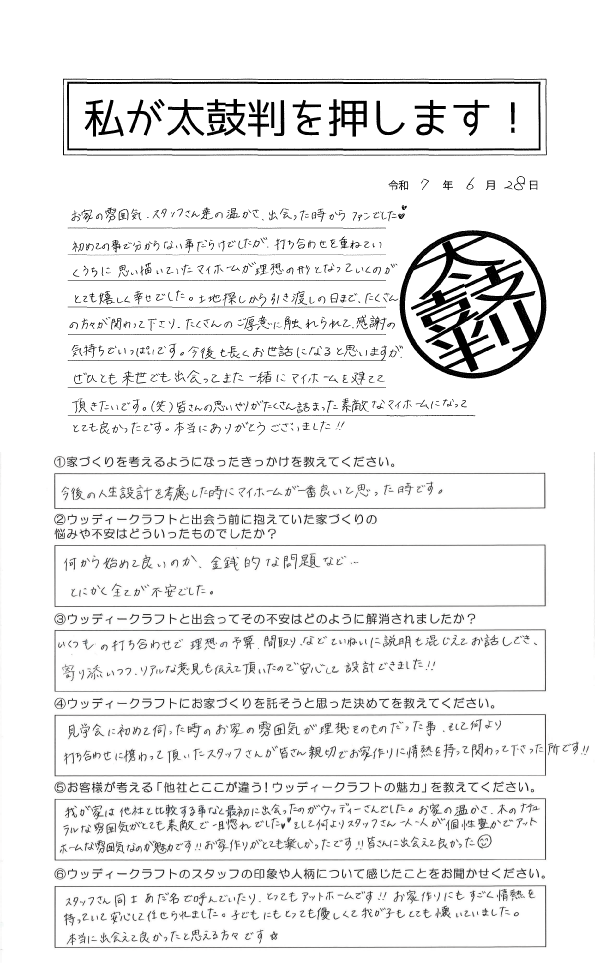 私が太鼓判を押します！
令和 7 年 6 月 28 日
お家の雰囲気、スタッフさん達の温かさ、出会った時から ファンでした♥
初めての事で分からない事だらけでしたが、打ち合わせを重ねてい
くうちに 思い描いていたマイホームが理想の形となっていくのが
とても嬉しく幸せでした。土地探しから引き渡しの日まで、たくさん
の方々が関わって下さり、たくさんの ご厚意に触れられて、感謝の
気持ちでいっぱいです。今後も長くお世話になると思いますが、
ぜひとも 来世でも出会ってまた一緒に マイホームを建てて
頂きたいです。(笑) 皆さんの思いやりがたくさん詰まった素敵なマイホームになって
とても良かったです。本当にありがとうございました!!
太鼓判
①家づくりを考えるようになったきっかけを教えてください。
今後の人生設計を考慮した時にマイホームが一番良いと思った時です。
②ウッディークラフトと出会う前に抱えていた家づくりの
悩みや不安はどういったものでしたか？
何から始めて良いのか、金銭的な問題など…
とにかく全てが不安でした。
③ウッディークラフトと出会ってその不安はどのように解消されましたか？
いくつもの打ち合わせで 理想の予算、間取り、など ていねいに説明も混じえてお話しでき、
寄り添いつつ、リアルな意見も伝えて頂いたので安心して 設計できました!!
④ウッディークラフトにお家づくりを託そうと思った決めてを教えてください。
見学会に初めて伺った時のお家の雰囲気が理想そのものだった事、そして何より
打ち合わせに携わって頂いたスタッフさんが皆さん親切でお家作りに情熱を持って関わって下さった所です!!
⑤お客様が考える「他社とここが違う！ウッディークラフトの魅力」を教えてください。
我が家は他社と比較する事なく最初に出会ったのがウッディーさんでした。お家の温かさ、木のナチュ
ラルな雰囲気がとても素敵で一目惚れでした♥♥そして何よりスタッフさん一人一人が個性豊かでアット
ホームな雰囲気なのが魅力です!!お家作りがとても楽しかったです!!皆さんに出会えて良かった☺
⑥ウッディークラフトのスタッフの印象や人柄について感じたことをお聞かせください。
スタッフさん同士あだ名で呼んでいたり、とってもアットホームです!! お家作りにもすごく情熱を
持っていて安心して任せられました。子どもにもとっても優しくて我が子もとても懐いていました。
本当に出会えて良かったと思える方々です☆